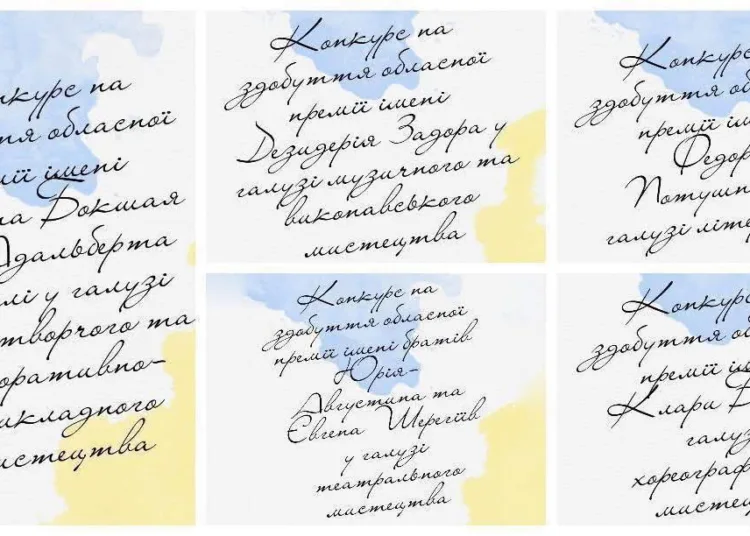 нкурс на
ття обласної
мії імені
па Бокшая
Адальберта
лі у галузі
творчого та
оративно-
икладного
истецтва
Конкурс на
здобуття обласної
премії імені
Дезидерія Задора у
галузі музичного та
виконавського
мистецтва
Конкурс на
здобуття обласної
премії імені братів
Юрія-
Августина та
Євгена Шерегіїв
у галузі
театрального
мистецтва
Конкурс
здобуття обл
премії ім
Федор
Потушн
галузі літе
Конкурс
здобуття обла
премії ім
Клари Б
галуз
хореограф
мистец